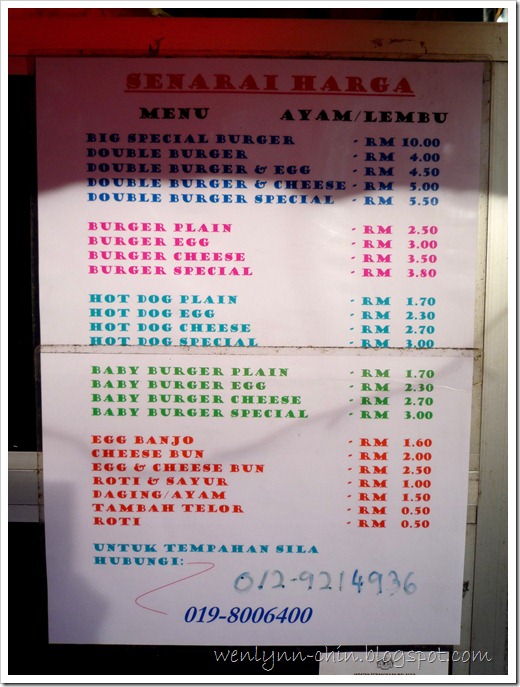 SENARAI HARGA
MENU AYAM/LEMBU
BIG SPECIAL BURGER - RM 10.00
DOUBLE BURGER - RM 4.00
DOUBLE BURGER & EGG - RM 4.50
DOUBLE BURGER & CHEESE - RM 5.00
DOUBLE BURGER SPECIAL - RM 5.50
BURGER PLAIN - RM 2.50
BURGER EGG - RM 3.00
BURGER CHEESE - RM 3.50
BURGER SPECIAL - RM 3.80
HOT DOG PLAIN - RM 1.70
HOT DOG EGG - RM 2.30
HOT DOG CHEESE - RM 2.70
HOT DOG SPECIAL - RM 3.00
BABY BURGER PLAIN - RM 1.70
BABY BURGER EGG - RM 2.30
BABY BURGER CHEESE - RM 2.70
BABY BURGER SPECIAL - RM 3.00
EGG BANJO - RM 1.60
CHEESE BUN - RM 2.00
EGG & CHEESE BUN - RM 2.50
ROTI & SAYUR - RM 1.00
DAGING/AYAM - RM 1.50
TAMBAH TELOR - RM 0.50
ROTI - RM 0.50
UNTUK TEMPAHAN SILA
HUBUNGI:
012-9214936
019-8006400
wenlynn-chin.blogspot.com